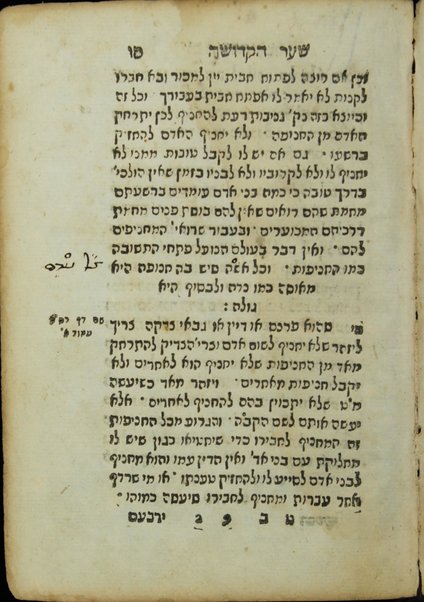 שער הקדושה סו
וכן אם רוצה לפתוח חבית יין למכור ובא חברו
לקנות לא יאמר לו אפתח חבית בעבורך וכל זה
וכיוצא בזה נק' גניבות דעת להחניף לכן יתרחק
האדם מן החניפה ולא יחניף האדם להחזיק
ברשעו גם אם יש לו לקבל טובות ממנו לא
יחניף לו ולא לקרוביו ולא לבניו בזמן שאין הולכי'
בדרך טובה כי כמה בני אדם עומדים ברשעתם
מחמת שהם רואים שאין להם בושת פנים מחמת
דרכיהם המכוערים ובעבור שרואי' המחניפים
להם ואין דבר בעולם הנועל פתחי התשובה
כמו החניפות וכל אשה שיש בה חנופה היא
מאוסה כמו נדה ולבסוף היא
גולה:
מי שהוא פרנס או דיין או גבאי צדקה צריך
ליזהר שלא יחניף לשום אדם וכדי הצדיק להתרחק
מאד מן החניפות שלא יחניף הוא לאחרים ולא
יקבל חניפות מאחרים ויזהר מאד כשיעשה
מ"ט שלא יתכוין בהם להחניף לאחרים אלא
יעשה אותם לשם הקב"ה והגרוע מכל החניפות
זה המחניף לחבירו כדי שיחטיאו כגון שיש לו
מחלוקת עם בני אד' ואין הדין עמו והוא מחניף
לבני אדם לסייע לו ולהחזיק טענתו או מי שרדף
אחר עברות ומחניף לחבירו שיעשה כמוהו
ט ב ט 2 ירבעם
שם דף רמ"ט
עמוד א'